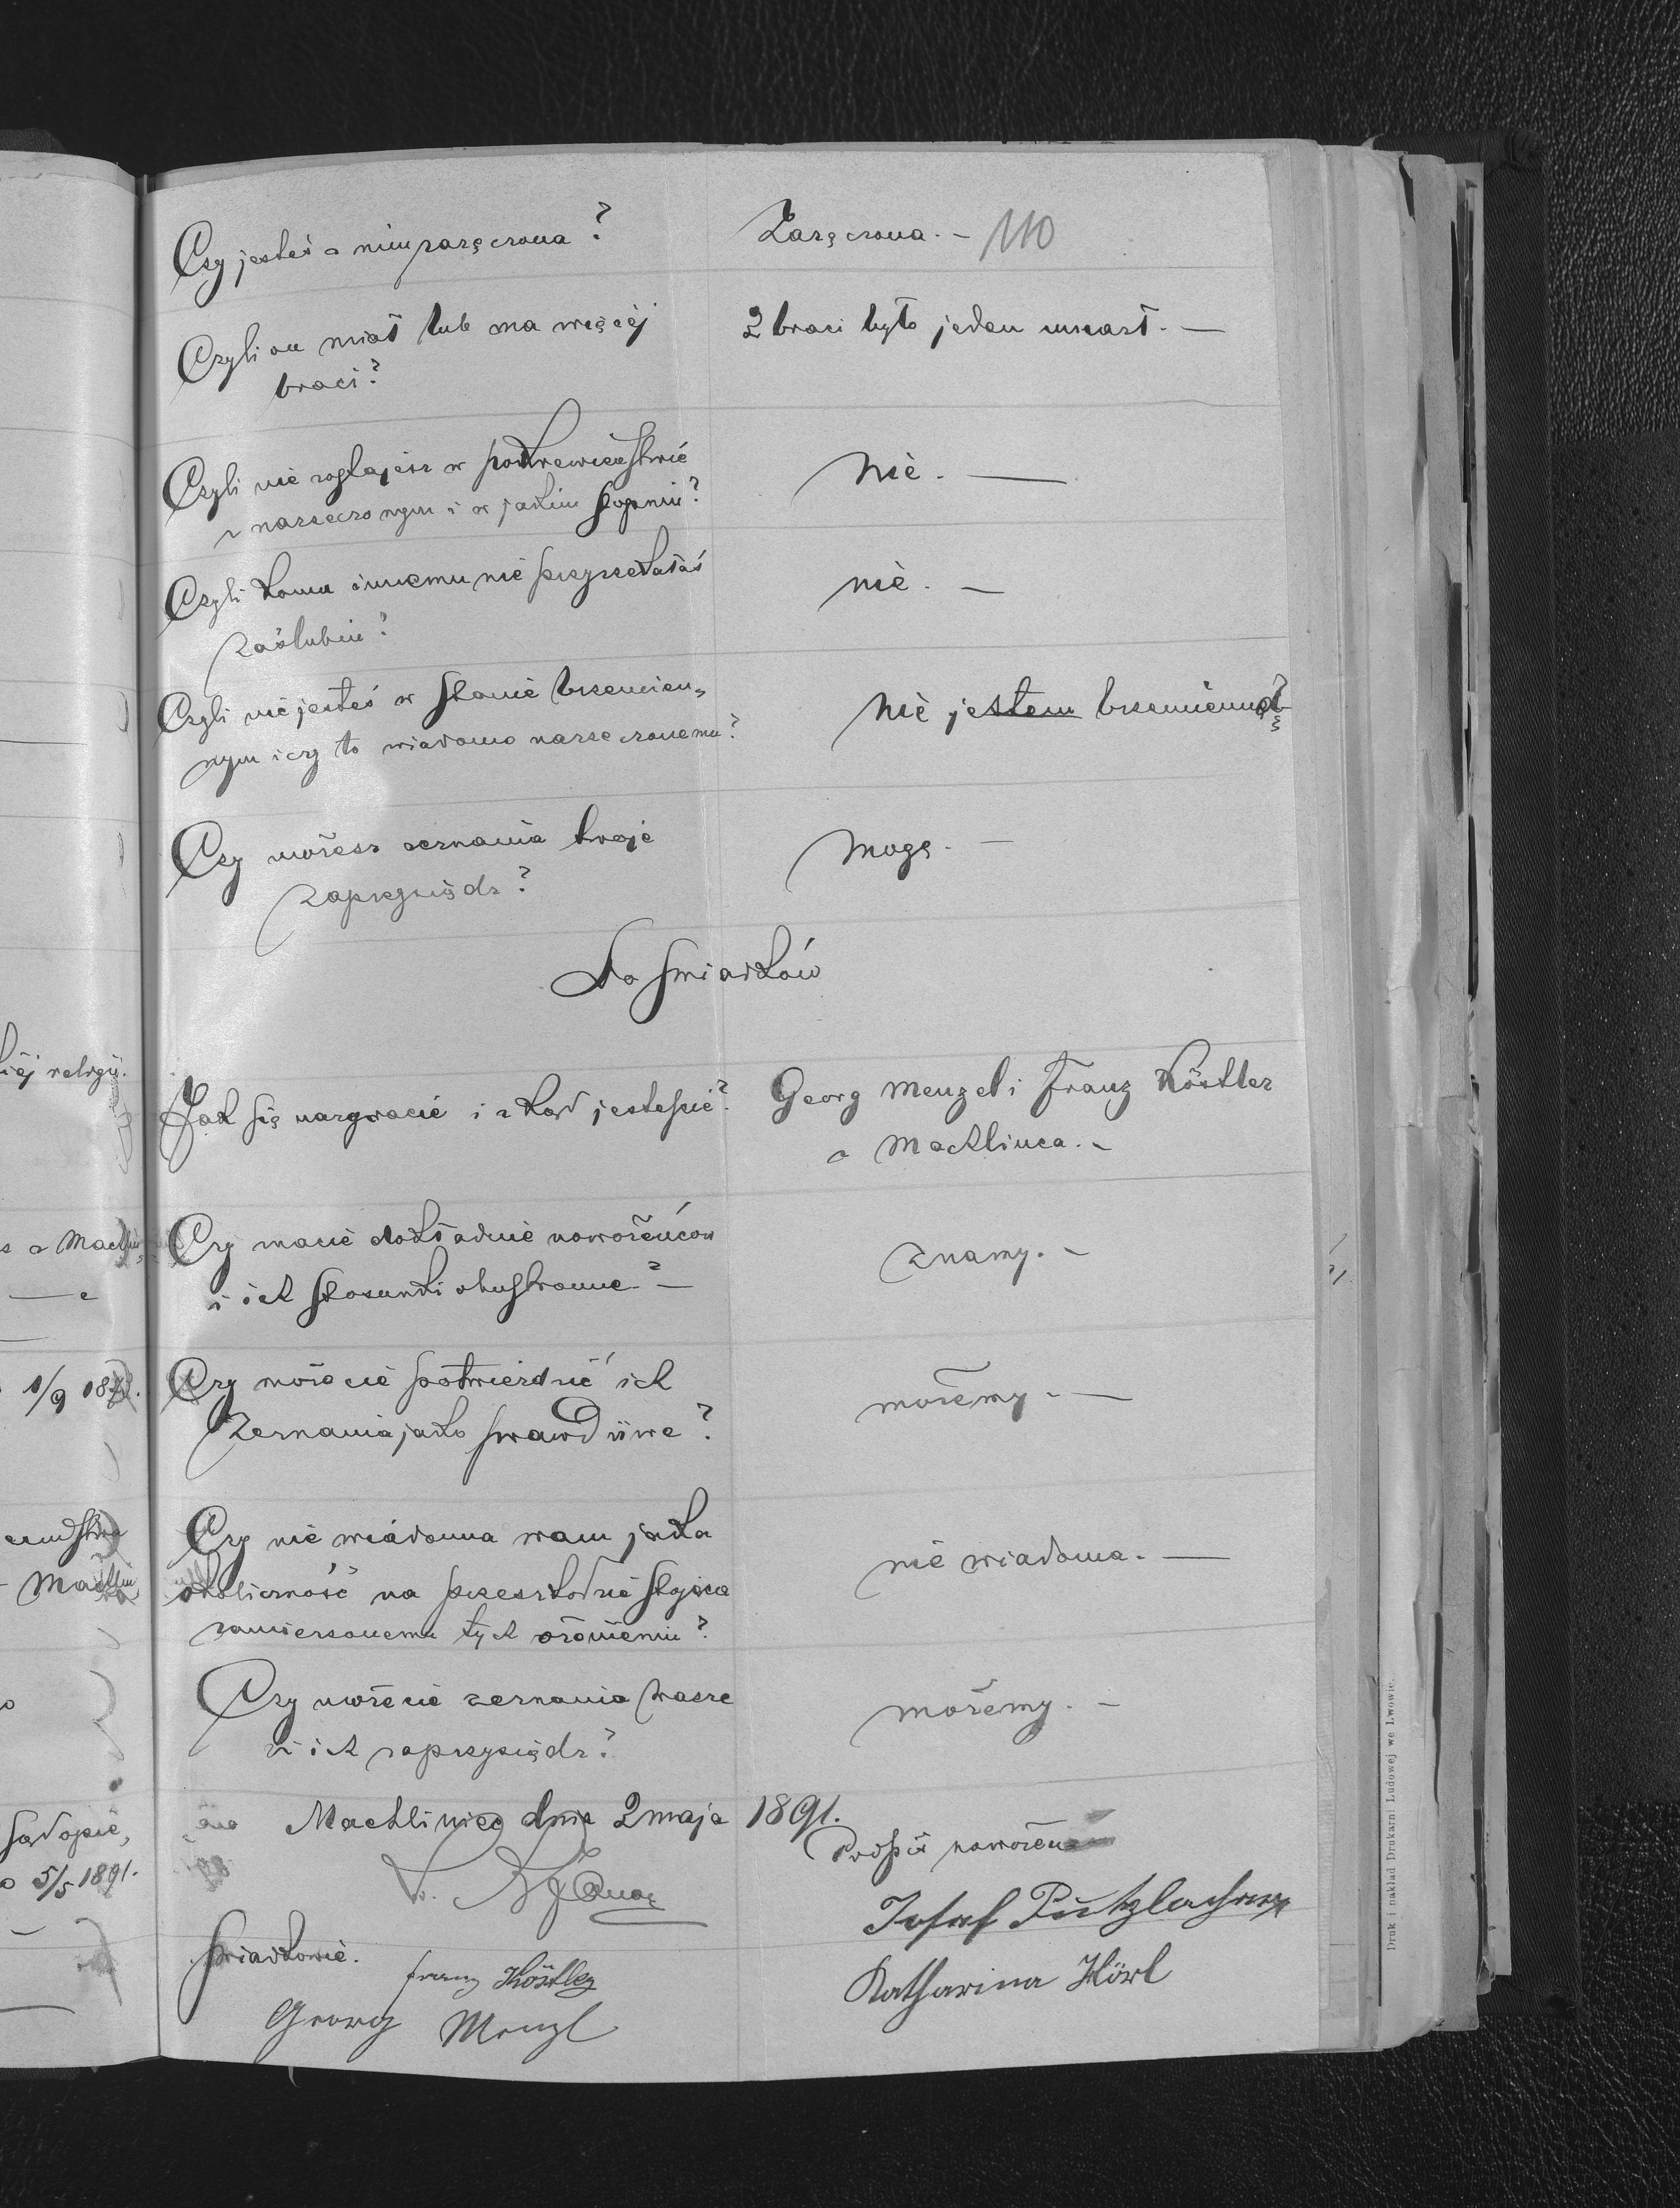 110
Czy jesteś z nim zaręczona?
Zaręczona. -
Czyli on miał lub ma więcéj
braci?
2 braci było jeden umarł. -
Czyli nie zostajesz w pokrewieństwie
z narzeczonym i w jakim stopniu?
Nie. -
Czyli komu innemu nie przyrzekałaś
zaślubin?
nie. -
Czyli nie jesteś w stanie brzemien-
nym i czy to wiadomo narzeczonemu?
Nie jestem brzemienną
Czy możesz zeznania twoje
zaprzysiądz?
Mogę. -
Do świadków
Jak się nazywacie i zkąd jesteście?
Georg Menzel i Franz Köstler
z Machlińca. -
Czy znacie dokładnie nowożeńców
i ich stosunki obustronne? -
Znamy. -
Czy możecie potwierdzić ich
Zeznania jako prawdziwe?
możemy. -
Czy nie wiadoma wam jaka
okoliczność na przeszkodzie stojąca
zamierzonemu tych ożenieniu?
nie wiadoma. -
Czy możecie zeznania wasze
i ich zaprzysiądz?
możemy. -
Machliniec dnia 2 maja 1891.
Podpis nowożeń
Josef Pützlacher
Katharina Hörl
Świadkowie.
Franz Köstler
Georg Menzl
iéj religii.
1/9 187
5/5 1891.
Druk i nakład Drukarni Ludowej we Lwowie.